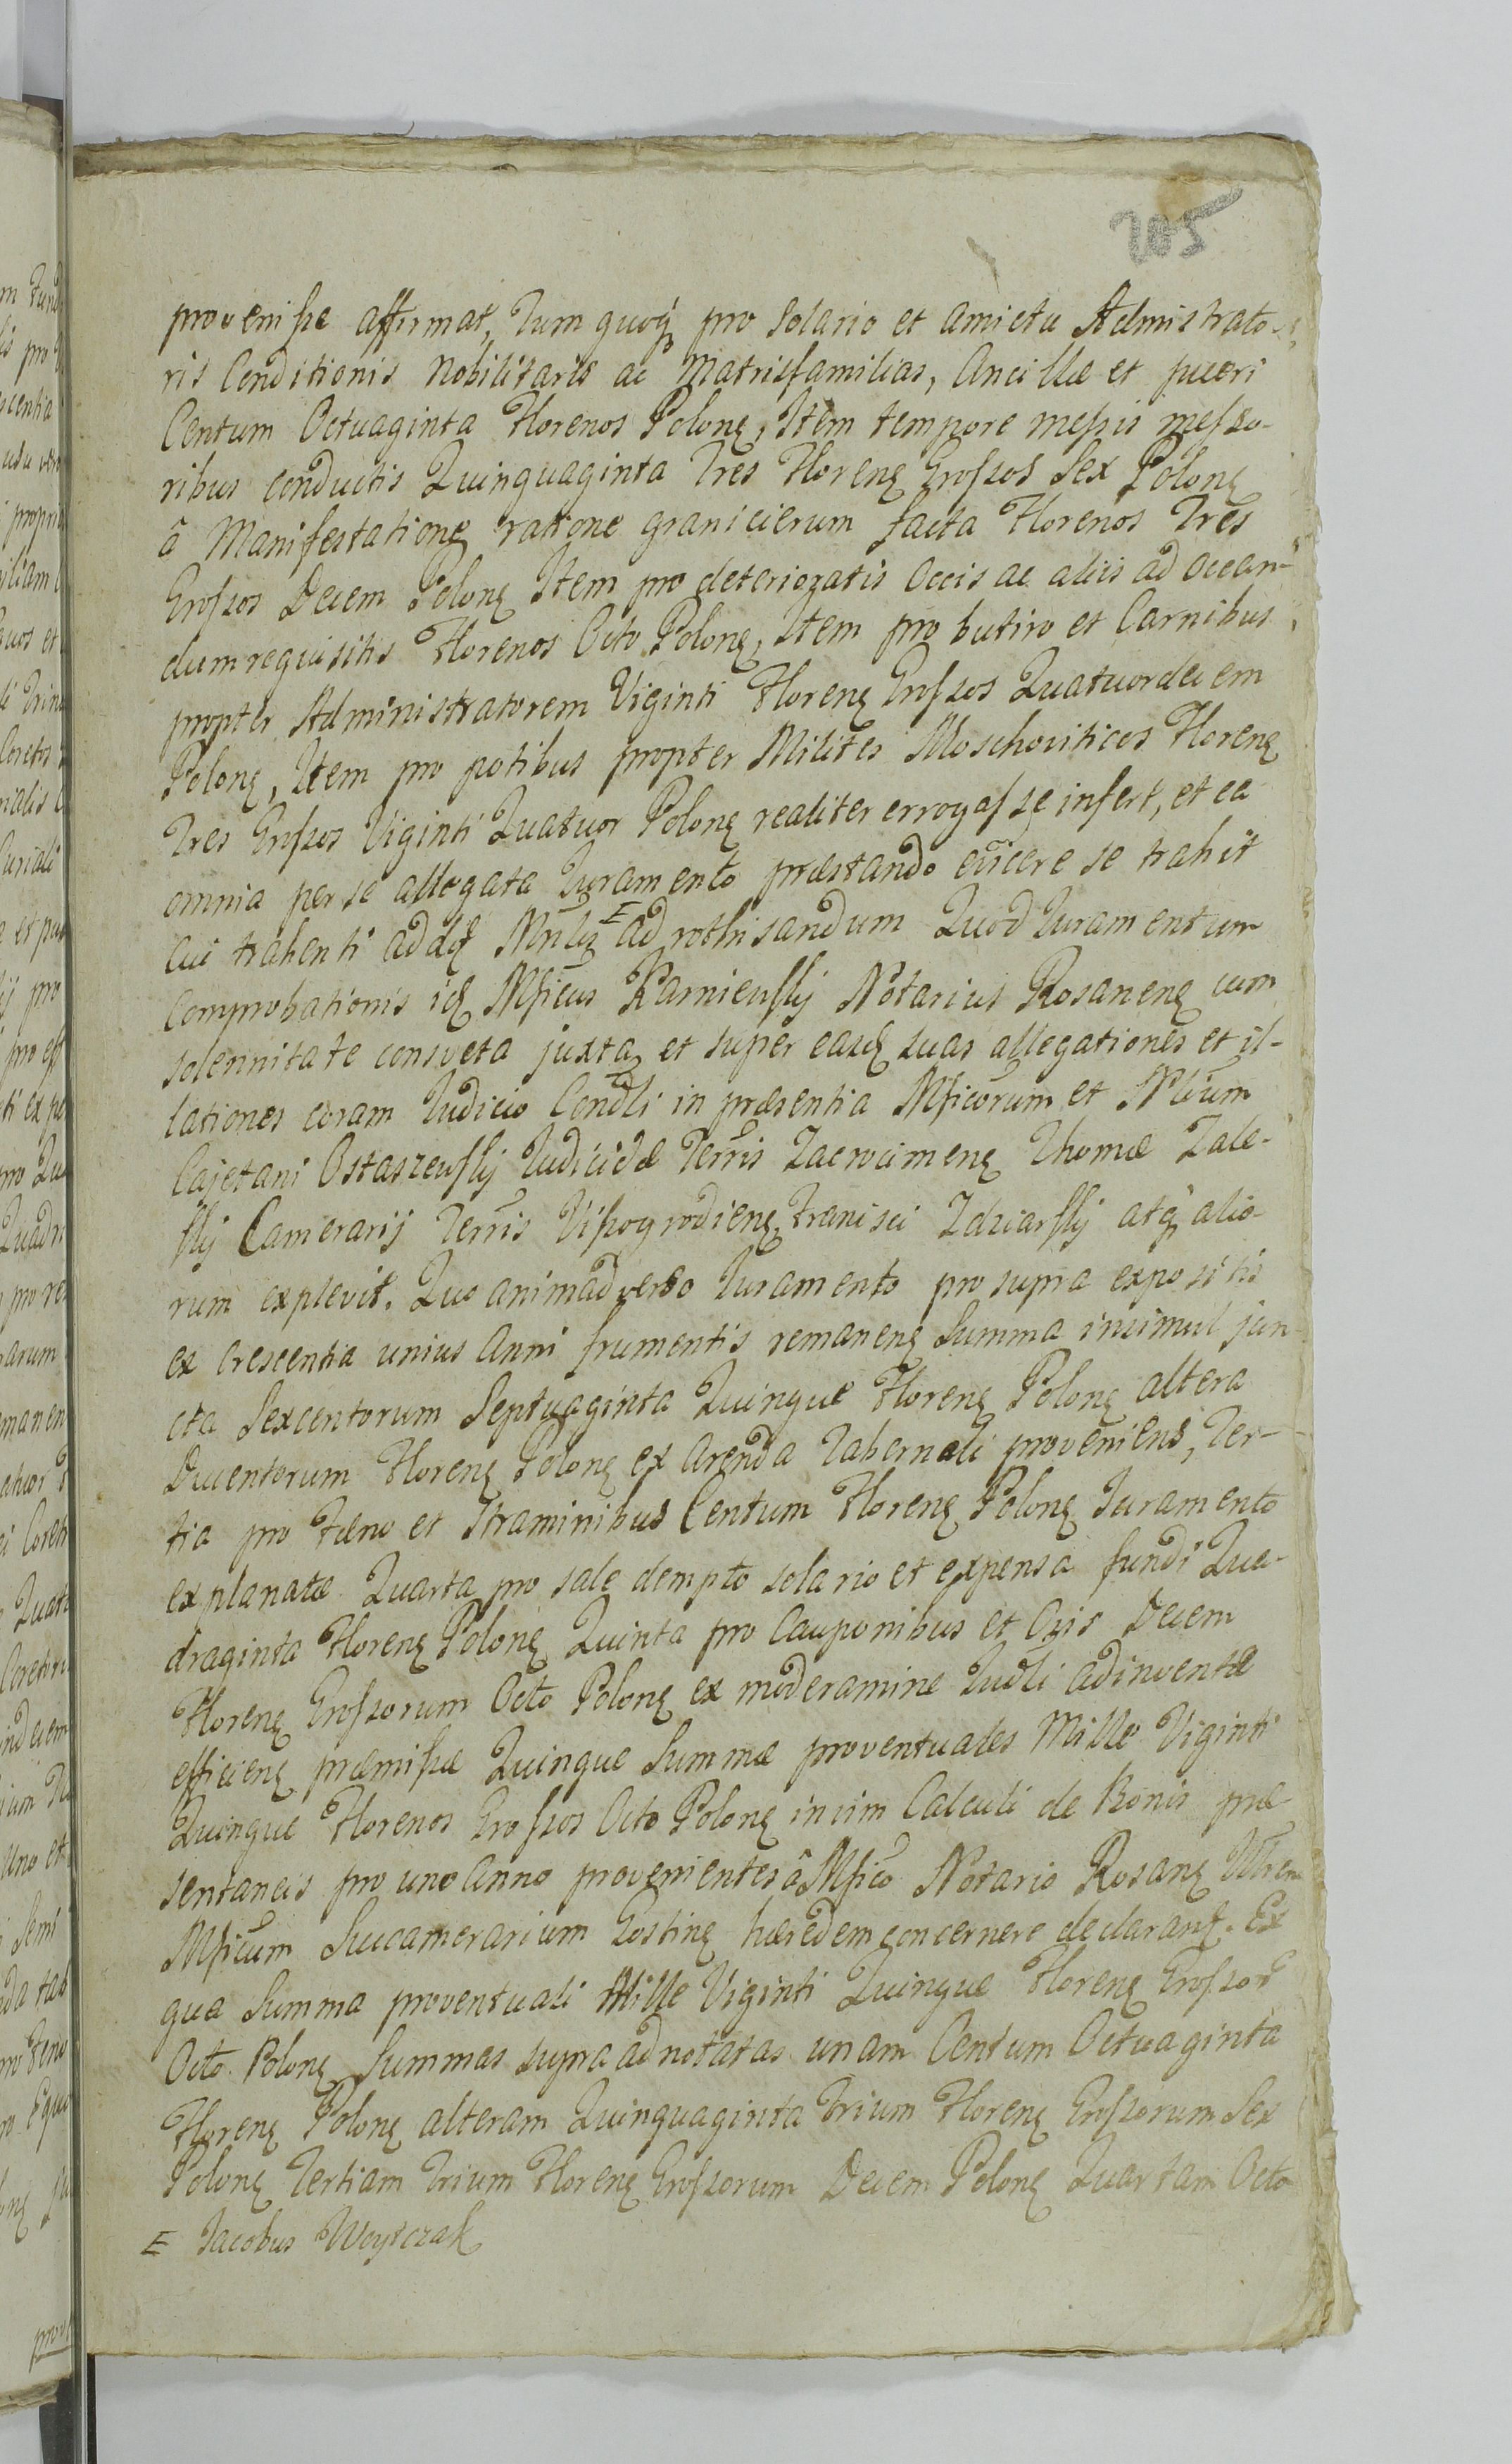 205
provenisse affirmat, Tum quoq pro Solario et amictu Admistrato-
ris Conditionis Nobilitaris ac Matrisfamilias, Ancillæ et pueri
Centum Octuaginta Florenos Polonę, Item tempore messis messo-
ribus conductis Quinquaginta Tres Florenę Grossos Sex Polonę
â Manifestationę ratione granicierum facta Florenos Tres
Grossos Decem Polonę Item pro deterioratis Occis ac aliis ad occan-
dum requisitis Florenos Octo Polonę, Item pro butiro et Carnibus
propter Administratorem Viginti Florenę Grossos Quatuordecem
Polonę, Item pro potibus propter Milites Moschoviticos Florenę
Tres Grossos Viginti Quatuor Polonę realiter errogasse infert, et ea
omnia per se allegata Juramento præstando evicere se trahit
cui trahenti ad rothisandum Quod Juramentum
Comprobationis idę Mficus Karnieuskij Notarius Rosanenę cum
solennitate consveta juxta et super easdę suas allegationes et il-
lationes coram Judicio Condli in præsentia Mficorum et Nlium
Cajetani Ostaszeuskij Judicidæ Terris Zacrocimenę Thomæ Zale-
skij Camerarij Terris Vissogrodienę, Francisci Zdziarskij atq alio-
rum explevit. Quo animadverso Juramento pro supra expositis
ex crescentia unius Anni frumentis remanenę Summa insimul jun-
cta Sexcentorum Septuaginta Quinque Florenę Polonę altera
Ducentorum Florenę Polonę ex Arenda Tabernali proveniens, Ter-
tia pro Fæno et Straminibus Centum Florenę Polonę Juramento
explanatæ Quarta pro sale dempto solario et expensa fundi Qua-
draginta Florenę Polonę Quinta pro Cauponibus et Ovis Decem
Florenę Grossorum Octo Polonę ex moderamine Judli adinventæ
efficienę præmissæ Quinque Summæ proventuales Mille Viginti
Quinque Florenos Grossos Octo Polonę in vim Calculi de Bonis præ-
sentaneis pro uno Anno provenientes â Mfico Notario Rosanę
Mficum Succamerarium Gostinę hæredem concernere declarant. Ex
qua Summa proventuali Mille Viginti Quinque Florenę Grossor
Octo Polonę Summas supra adnotatas unam Centum Octuaginta
Florenę Polonę alteram Quinquaginta Trium Florenę Grossorum Sex
Polonę Tertiam Trium Florenę Grossorum Decem Polonę Quartam Octo
E Jacobus Woytczak